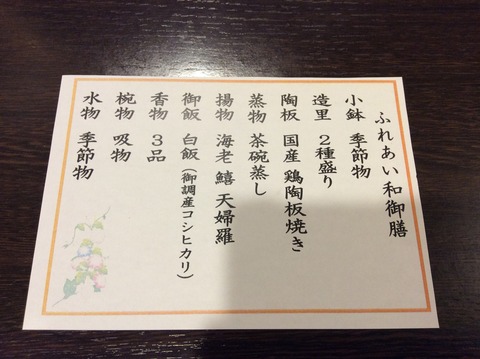 ふれあい和御膳
小鉢 季節物
造里 2種盛り
陶板 国産 鶏陶板焼き
蒸物 茶碗蒸し
揚物 海老 鱚 天婦羅
御飯 白飯(御調産コシヒカリ)
香物 3品
椀物 吸物
水物 季節物